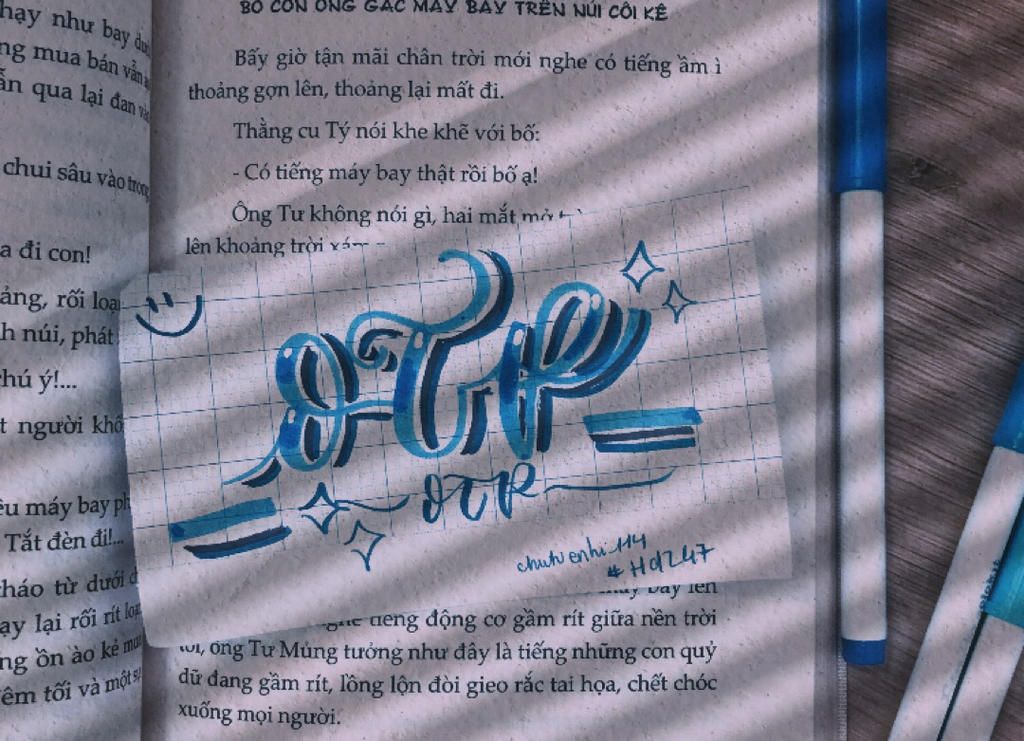 hạy như bay dướ
ng mua bán vẫn
ẫn qua lại đan
chui sâu vào trong
a đi con!
ảng, rối loạ
h núi, phát
hú ý!...
t người khô
ều máy bay ph
Tắt đèn đi!...
háo từ dưới đ
ạy lại rối rít loạ
ng ồn ào kẻ mu
êm tối và một s
BỐ CON ÔNG GÁC MÁY BAY TRÊN NÚI CÔI KÊ
Bấy giờ tận mãi chân trời mới nghe có tiếng ầm ì
thoảng gợn lên, thoảng lại mất đi.
Thằng cu Tý nói khe khẽ với bố:
- Có tiếng máy bay thật rồi bố ạ!
Ông Tư không nói gì, hai mắt mở
lên khoảng trời
OTP
OTP
#Hd247
máy bay lên
nghe tiếng động cơ gầm rít giữa nền trời
tối, ông Tư Mủng tưởng như đây là tiếng những con quỷ
dữ đang gầm rít, lồng lộn đòi gieo rắc tai họa, chết chóc
xuống mọi người.